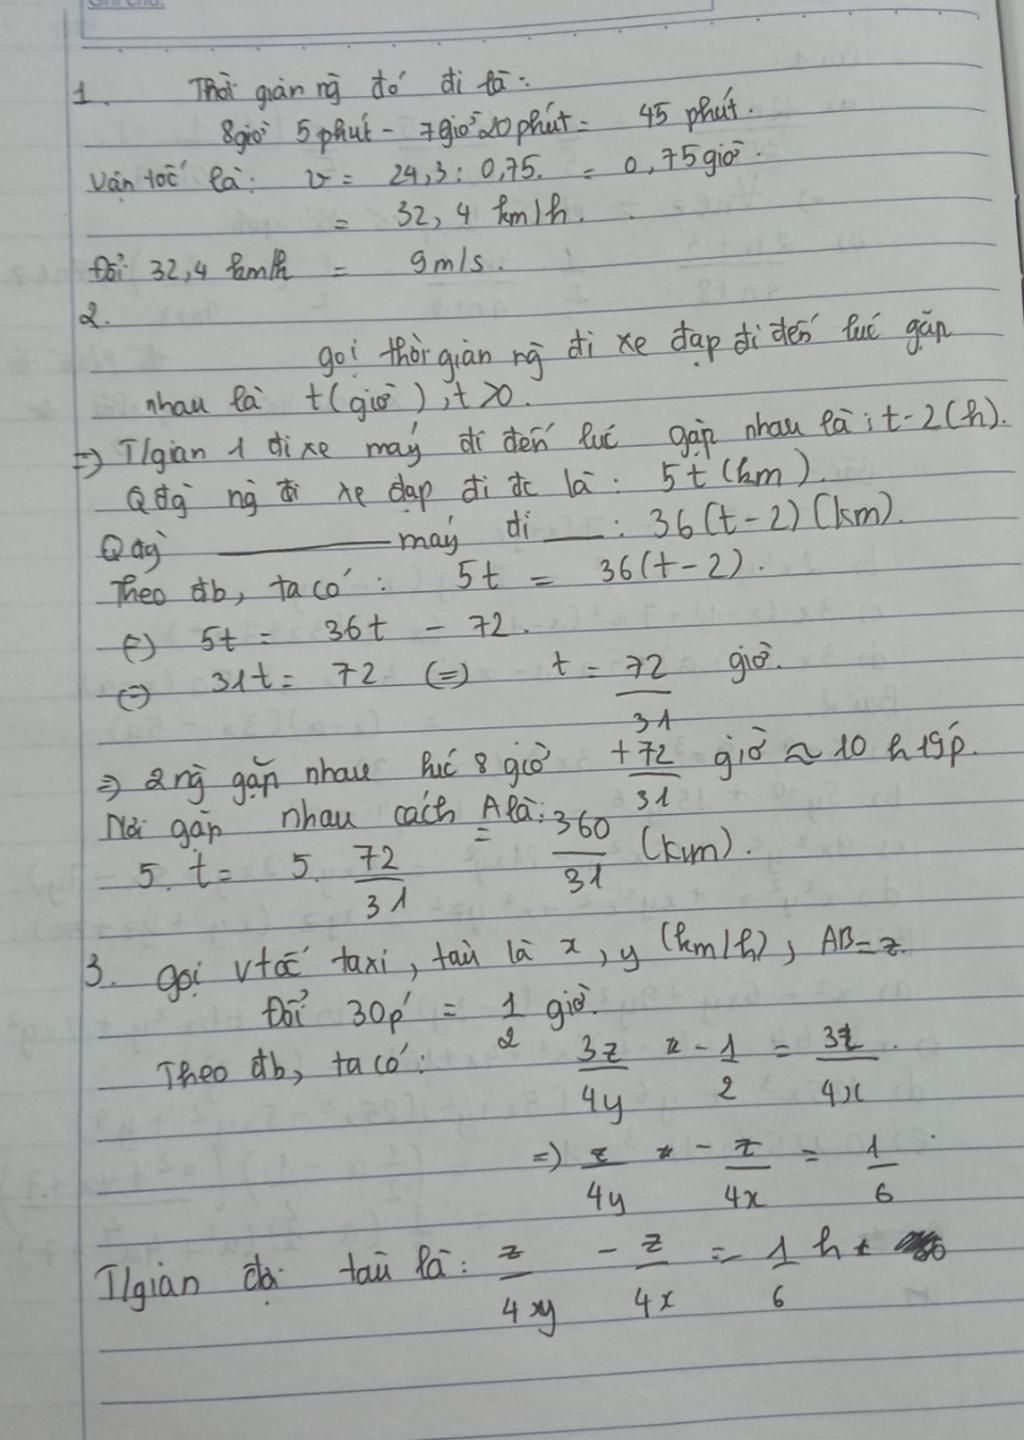 1. Thời gian ng đó đi là:
8giờ 5phút - 7giờ20phút = 45 phút.
Vận tốc là: v = 24,3 : 0,75. = 0,75giờ.
= 32,4 km/h.
Đổi 32,4 km/h = 9m/s.
2.
gọi thời gian ng đi xe đạp đi đến lúc gặp
nhau là t(giờ), t>0.
=> T/gian 1 đi xe máy đi đến lúc gặp nhau là: t-2(h).
Q đg ng đi xe đạp đi đc là: 5t (km).
Q đg ——— máy đi —: 36(t-2)(km).
Theo đb, ta có: 5t = 36(t-2).
(=) 5t = 36t - 72.
(=) 31t = 72 (=) t = 72/31 giờ.
=> 2 ng gặp nhau lúc 8 giờ + 72/31 giờ ≈ 10h19p.
Nơi gặp nhau cách A là:
5. t = 5. 72/31 = 360/31 (km).
3. gọi vtốc taxi, tàu là x, y (km/h), AB = z.
Đổi 30p' = 1/2 giờ.
Theo đb, ta có: 3z/4y - 1/2 = 3z/4x.
=) z/4y - z/4x = 1/6
T/gian đi tàu là: z/4xy - z/4x = 1/6 h